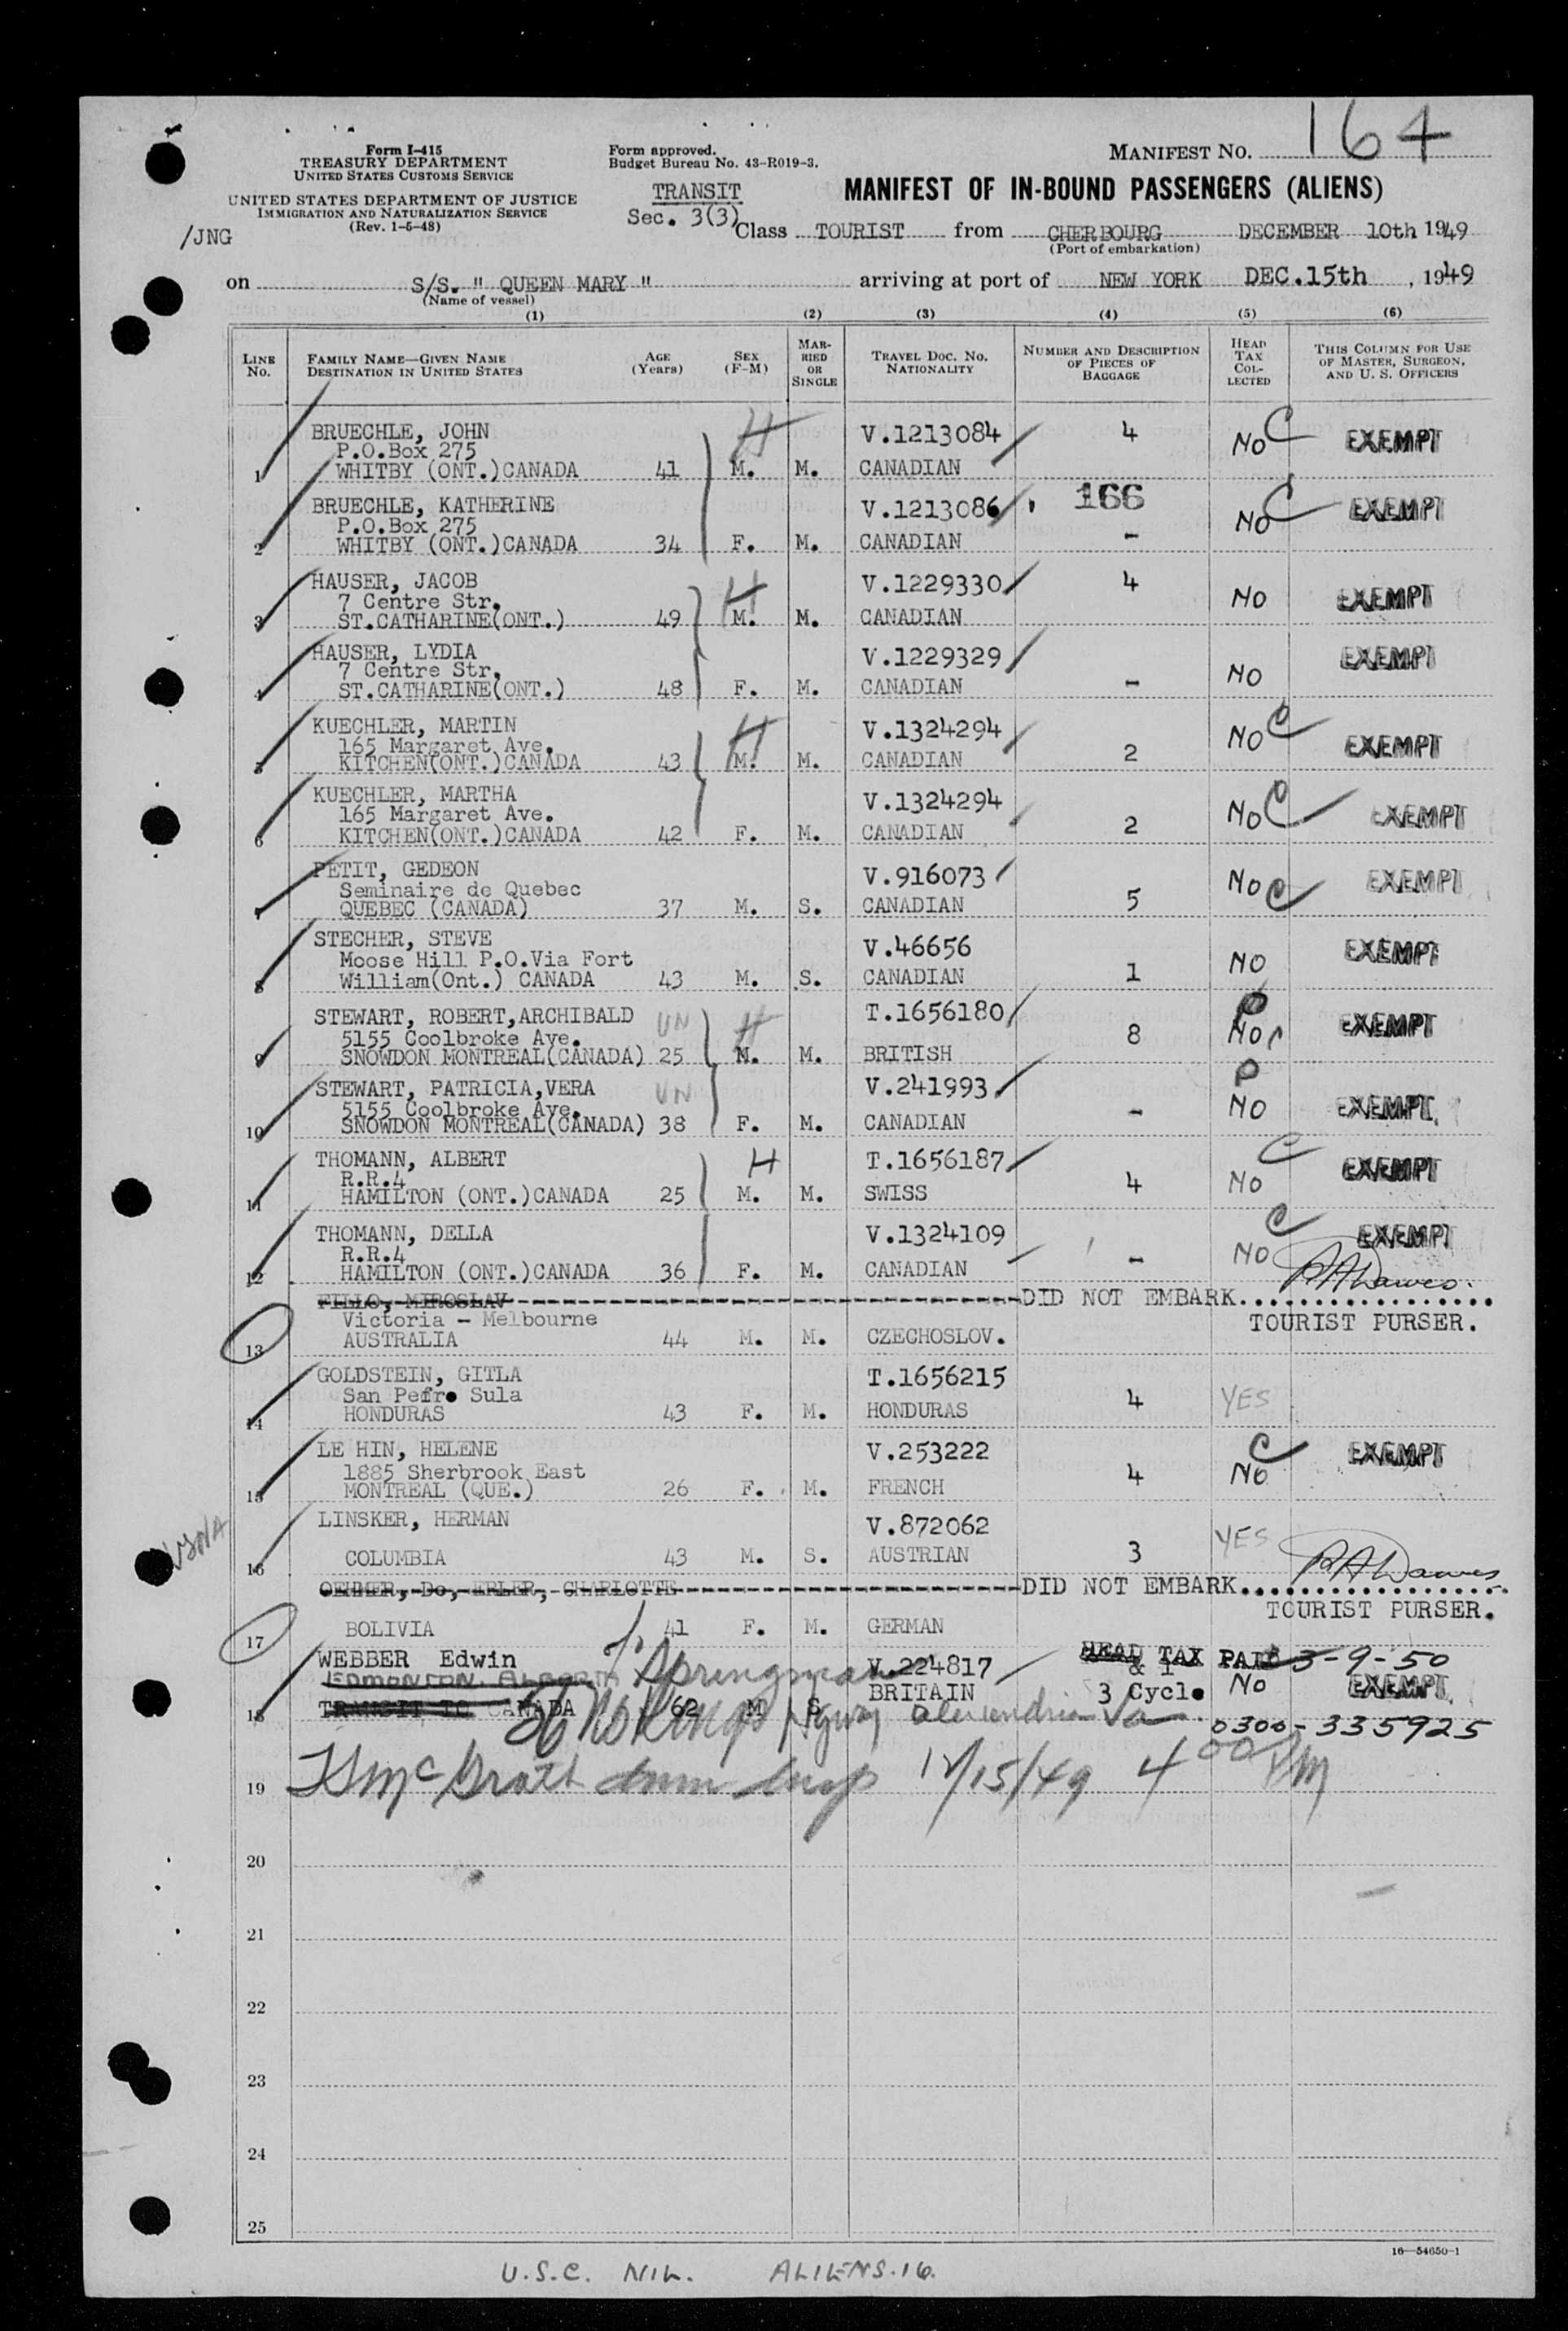 164
Form I-415
TREASURY DEPARTMENT
UNITED STATES CUSTOMS SERVICE
UNITED STATES DEPARTMENT OF JUSTICE
IMMIGRATION AND NATURALIZATION SERVICE
(Rev. 1-5-48)
/JNG
Form approved.
Budget Bureau No. 43-R019-3.
MANIFEST NO.
TRANSIT
Sec. 3(3)
MANIFEST OF IN-BOUND PASSENGERS (ALIENS)
Class TOURIST from CHERBOURG DECEMBER 10th 1949
(Port of embarkation)
on S/S. " QUEEN MARY " arriving at port of NEW YORK DEC.15th , 1949
(Name of vessel)
(1) (2) (3) (4) (5) (6)
LINE No.
FAMILY NAME—GIVEN NAME
DESTINATION IN UNITED STATES
AGE (Years)
SEX (F-M)
MARRIED OR SINGLE
TRAVEL DOC. No. NATIONALITY
NUMBER AND DESCRIPTION OF PIECES OF BAGGAGE
HEAD TAX COLLECTED
THIS COLUMN FOR USE OF MASTER, SURGEON, AND U. S. OFFICERS
BRUECHLE, JOHN H V.1213084 4 NO C EXEMPT
P.O.Box 275
1 WHITBY (ONT.)CANADA 41 M. M. CANADIAN
BRUECHLE, KATHERINE V.1213086 166 NO C EXEMPT
P.O.Box 275
2 WHITBY (ONT.)CANADA 34 F. M. CANADIAN -
HAUSER, JACOB H V.1229330 4 NO EXEMPT
7 Centre Str.
3 ST.CATHARINE(ONT.) 49 M. M. CANADIAN
HAUSER, LYDIA V.1229329 NO EXEMPT
7 Centre Str.
4 ST.CATHARINE(ONT.) 48 F. M. CANADIAN -
KUECHLER, MARTIN H V.1324294 NO C EXEMPT
165 Margaret Ave.
5 KITCHEN(ONT.)CANADA 43 M. M. CANADIAN 2
KUECHLER, MARTHA V.1324294 NO C EXEMPT
165 Margaret Ave.
6 KITCHEN(ONT.)CANADA 42 F. M. CANADIAN 2
PETIT, GEDEON V.916073 NO C EXEMPT
Seminaire de Quebec
7 QUEBEC (CANADA) 37 M. S. CANADIAN 5
STECHER, STEVE V.46656 NO EXEMPT
Moose Hill P.O.Via Fort
8 William(Ont.) CANADA 43 M. S. CANADIAN 1
STEWART, ROBERT,ARCHIBALD UN H T.1656180 8 NO EXEMPT
5155 Coolbroke Ave.
9 SNOWDON MONTREAL(CANADA) 25 M. M. BRITISH
STEWART, PATRICIA,VERA UN V.241993 NO EXEMPT
5155 Coolbroke Ave.
10 SNOWDON MONTREAL(CANADA) 38 F. M. CANADIAN -
THOMANN, ALBERT H T.1656187 C EXEMPT
R.R.4
11 HAMILTON (ONT.)CANADA 25 M. M. SWISS 4 NO
THOMANN, DELLA V.1324109 C EXEMPT
R.R.4
12 HAMILTON (ONT.)CANADA 36 F. M. CANADIAN - NO
FILLO, MIROSLAV DID NOT EMBARK
Victoria - Melbourne TOURIST PURSER.
13 AUSTRALIA 44 M. M. CZECHOSLOV.
GOLDSTEIN, GITLA T.1656215
San Pefro Sula
14 HONDURAS 43 F. M. HONDURAS 4 YES
LE HIN, HELENE V.253222 C EXEMPT
1885 Sherbrook East
15 MONTREAL (QUE.) 26 F. M. FRENCH 4 NO
LINSKER, HERMAN V.872062 YES
16 COLUMBIA 43 M. S. AUSTRIAN 3
OEHMER, Do, ERLER, CHARLOTTE DID NOT EMBARK
TOURIST PURSER.
17 BOLIVIA 41 F. M. GERMAN
WEBBER Edwin Springman V.224817 HEAD TAX PAID 3-9-50
EDMONTON. ALBERTA & 1
18 TRANSIT TO CANADA 62 M S BRITAIN 3 Cycle NO EXEMPT
No Kings Hgway Alexandria Va 0300-335925
19 McGrath Imm Insp 12/15/49 4 00 PM
20
21
22
23
24
25
16—54650-1
U.S.C. NIL. ALIENS.16.